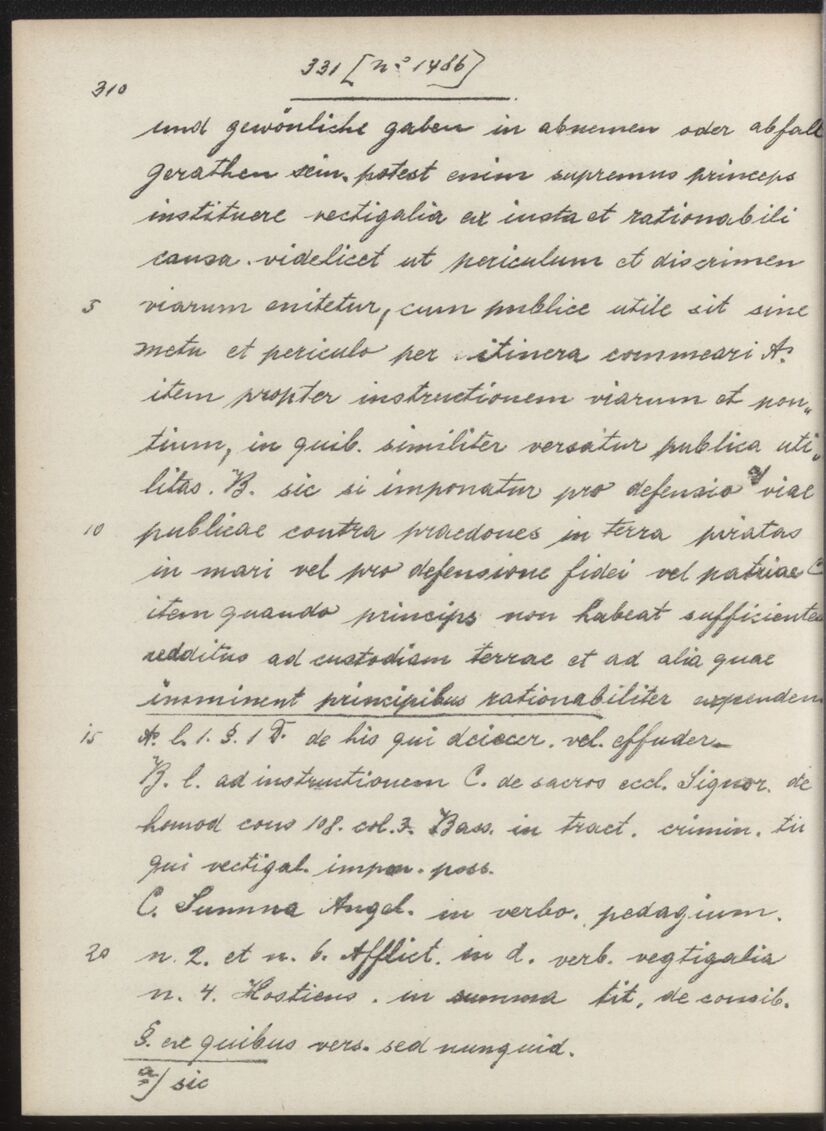 331 [nº 1486]
310
und gewönliche gaben in abnemen oder abfall
gerathen sein. potest enim supremus princeps
instituere vectigalia ex iusta et rationabili
causa. videlicet ut periculum et discrimen
5 viarum enitetur, cum publice utile sit sine
metu et periculo per itinera commeari A.
item propter instructionem viarum et pon„
tium, in quib. similiter versatur publica uti„
litas. B. sic si imponatur pro defensio a) viae
10 publicae contra praedones in terra piratas
in mari vel pro defensione fidei vel patriae C
item quando princips non habeat sufficientes
redditus ad custodiam terrae et ad alia quae
imminent principibus rationabiliter expenden
15 A. l. 1. §. 1 D. de his qui deiecer. vel. effuder.
B. l. ad instructionem C. de sacros eccl. Signor. de
homod cons 108. col. 3. Bass. in tract. crimin. tit
qui vectigal. impon. poss.
C. Summa Angel. in verbo. pedagium.
20 n. 2. et n. 6. Afflict. in d. verb. vegtigalia
n. 4. Hostiens. in summa tit. de consib.
§. ex quibus vers. sed nunquid.
a) sic